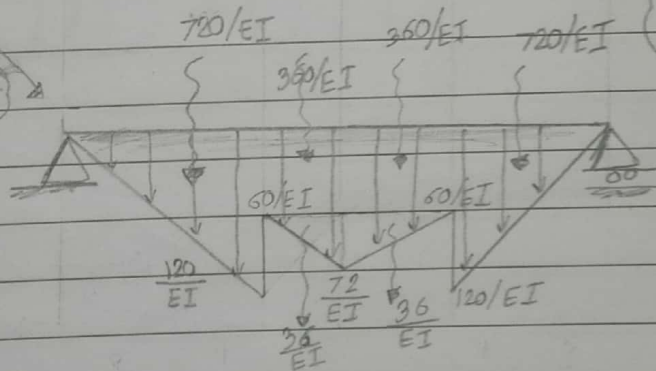 720/EI 360/EI 720/EI
360/EI
60/EI 60/EI
120/EI 72/EI 120/EI
36/EI 36/EI